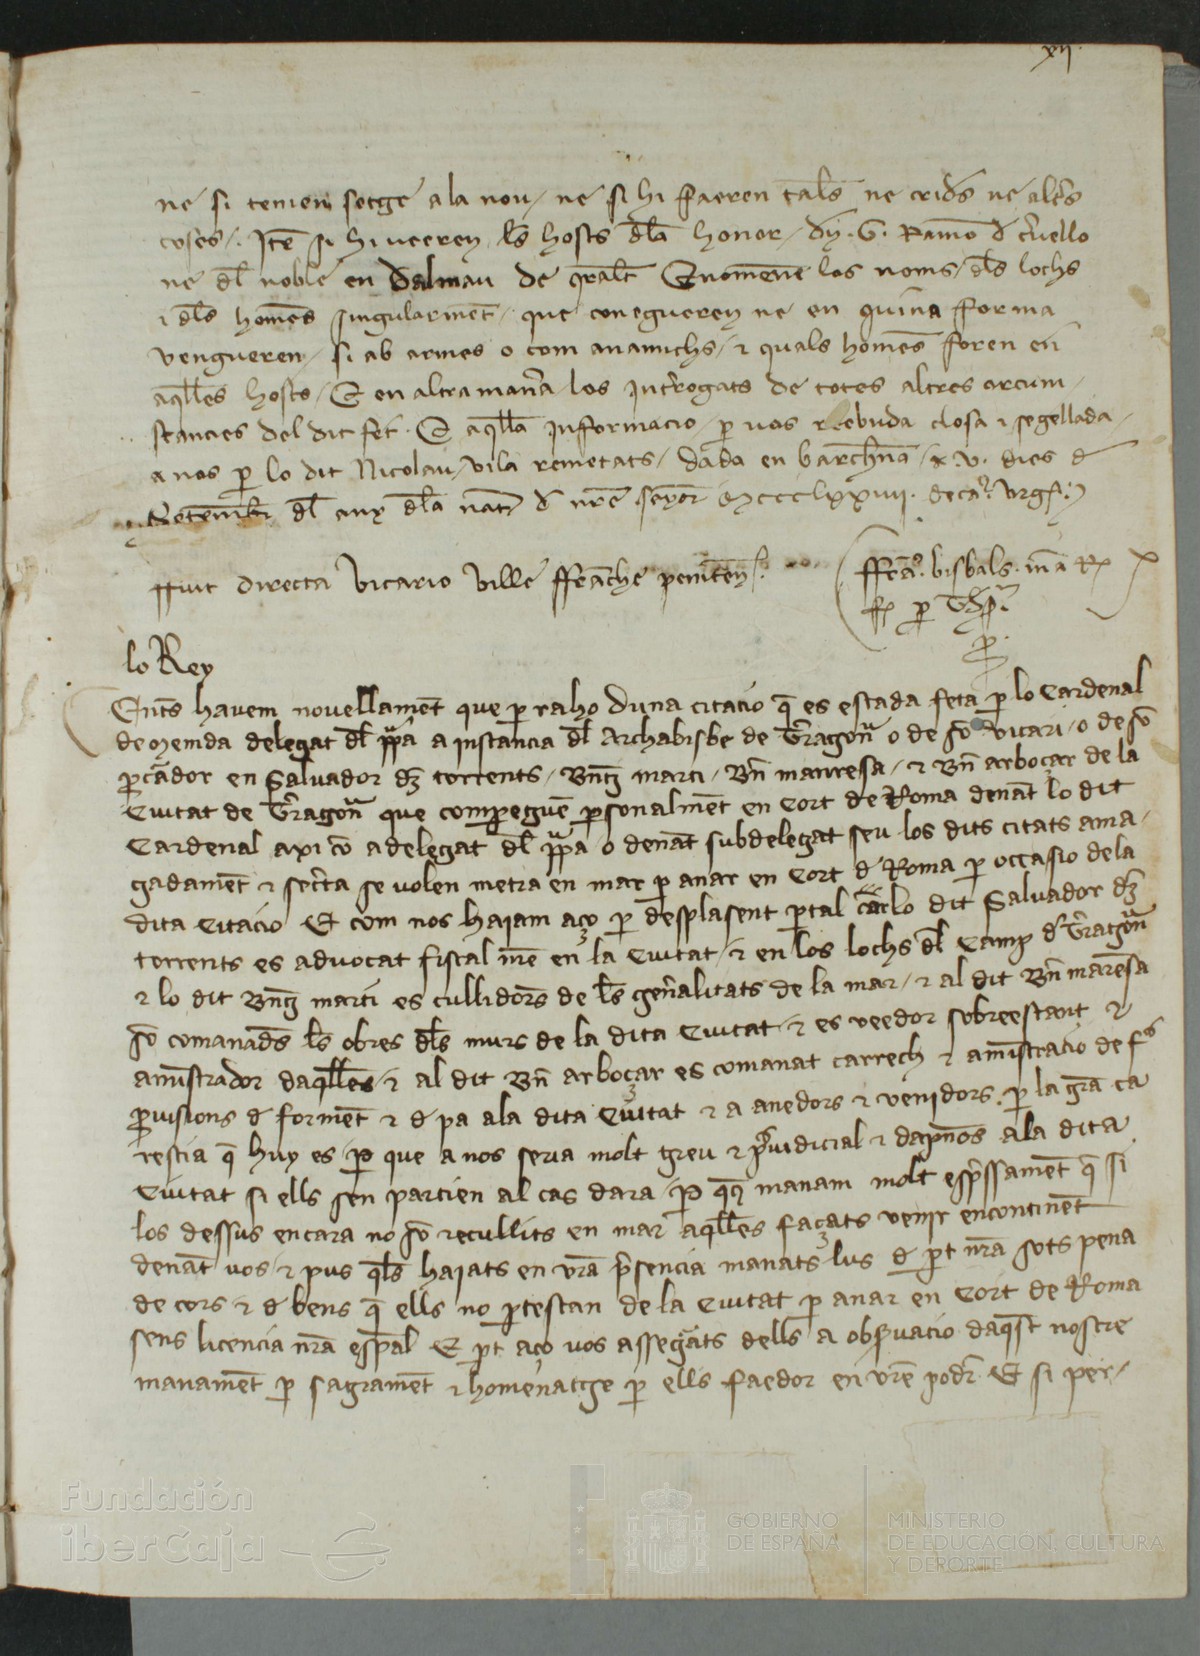 xij.
ne si tenien setge a la nou / ne si hi faeren tals ne crids ne altres
coses /. Itē si hi veeren ls hosts dla honor / dn. G. Ramō d c̄uello
ne dl noble en dalmau de q̄ralt E nomēne los noms / dls lochs
⁊ dls homēs singularmēt / que conegueren ne en quina forma
vengueren / si ab armes o com an amichs / ⁊ quals homēs foren en
aqlles hosts / E en altra man̄a los int̄rogats de totes altres circum /
stancies del dit fet. E aqlla informacio / p̱ vos reebuda closa ⁊ segellada /
a nos p̱ lo dit Nicolau / vila remetats / dada en barch̄na / x. v. dies d
Setembr dl any dla nat d nr̄e senyor Mcccclxxiiii.
ffuit directa vicario ville ffrāche peniten.
lo Rey
Entēs havem novellamēt que p̱ raho duna citacio q̄ es estada feta p̱ lo Cardenal
de Menda delegat dl ppa a instancia dl Archabisbe de Tr̄agona o de sō vicari / o de sō
p̱cādor en Salvador dz torrents / Bn̄t marti / Bn̄ manresa / ⁊ Bn̄ arboçar de la
Ciutat de Tr̄agona que compeguē p̱sonalmēt en Cort de Roma denāt lo dit
Cardenal axi cō a delegat dl ppa o denāt subdelegat seu los dits citats ama /
gadamēt ⁊ secr̄ta se volen metra en mar p̱ anar en Cort d Roma p̱ occasio de la
dita Citacio Et com nos haiam aço p̱ desplasent p̱tal car lo dit Salvador dz
torrents es advocat fiscal nr̄e en la Ciutat / ⁊ en los lochs dl Camp d Tr̄agona
⁊ lo dit Bn̄t marti es cullidors de ls gen̄alitats de la mar / ⁊ al dit Bn̄ manresa
sō comanads ls obres dls murs de la dita Ciutat ⁊ es veedor sobreestant ⁊
amīstrador daqlles / ⁊ al dit Bn̄ arboçar es comanat carrech ⁊ amīstracio de fs
p̱visions d formēt ⁊ d pa a la dita Ciutat ⁊ a anedors ⁊ venidors. p̱ la grā ca
restia q̄ huy es / P̱ que a nos seria molt greu ⁊ p̄iudicial ⁊ dapnōs a la dita
Ciutat si ells sen partien al cas dara / P̱ qq̄ manam molt esp̄ssamēt q̄ si
los dessus encara no sō recullits en mar aqlles façats venir encontinēt
denāt vos / ⁊ pus qls haiats en vr̄a p̄sencia manats lus d p̱t nr̄a sots pena
de cors ⁊ d bens q̄ ells no p̱tescan de la Ciutat p̱ anar en Cort de Roma
sens licencia nr̄a esp̱al E p̱t aço vos assegūats dells a obs̱vacio daqst nostre
manamēt p̱ sagramēt ⁊ homenatge p̱ ells faedor en vr̄e podr Et si per /
Fundación
iberCaja
GOBIERNO
DE ESPAÑA
MINISTERIO
DE EDUCACIÓN, CULTURA
Y DEPORTE